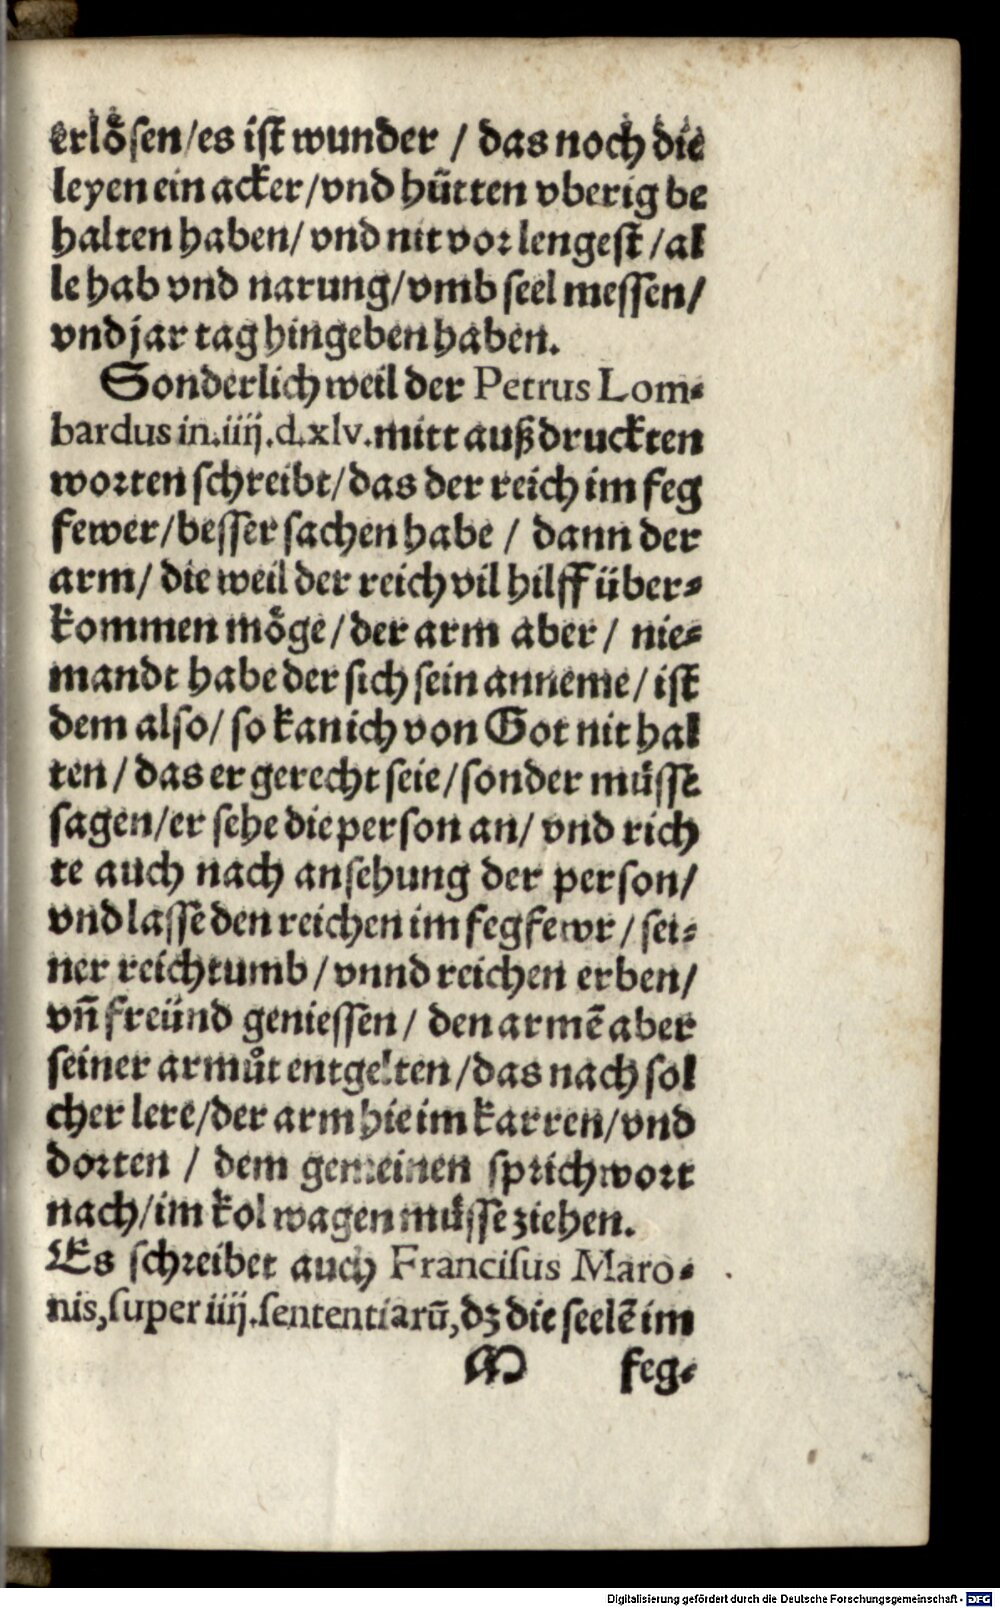 erlösen/es ist wunder / das noch die
leyen ein acker/vnd hütten vberig be
halten haben/ vnd nit vor lengest /al
le hab vnd narung/vmb seel messen/
vnd jar tag hingeben haben.
Sonderlich weil der Petrus Lom⸗
bardus in.iiij.d.xlv.mitt außdruckten
worten schreibt/das der reich im feg
fewer/besser sachen habe / dann der
arm/ die weil der reich vil hilff über⸗
kommen möge/der arm aber/ nie⸗
mandt habe der sich sein anneme/ ist
dem also/ so kan ich von Got nit hal
ten/ das er gerecht seie/sonder müsse
sagen/er sehe die person an/ vnd rich
te auch nach ansehung der person/
vnd lasse den reichen im fegfewr/ sei⸗
ner reichtumb/ vnnd reichen erben/
vn̄ freünd geniessen/ den armē aber
seiner armůt entgelten/das nach sol
cher lere/der arm hie im karren/vnd
dorten / dem gemeinen sprichwort
nach/im kol wagen müsse ziehen.
Es schreibet auch Francisus Maro⸗
nis,super iiij.sententiarū,dz die seelē im
M feg⸗
Digitalisierung gefördert durch die Deutsche Forschungsgemeinschaft - DFG